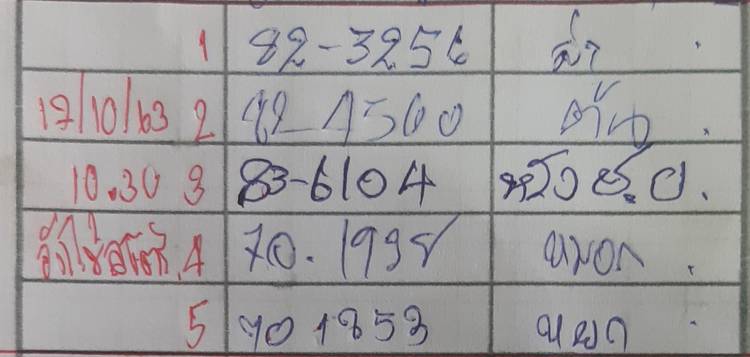 1 82-3256 ล่า
17/10/63 2 82-4500 ต้น
10.30 3 83-6104 หวังช.ย.
4 70.1998 หมอก
5 70 1853 หยก